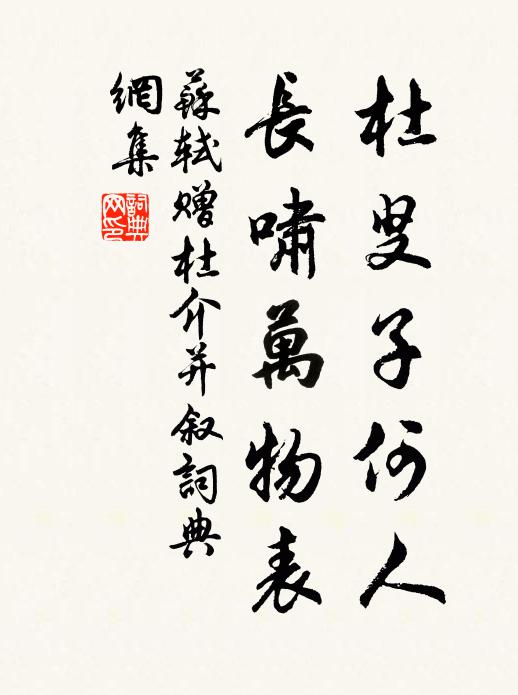 杜叟子何人
長嘯萬物表
蘇軾贈杜介并敘詞典
網集
詞典
网印